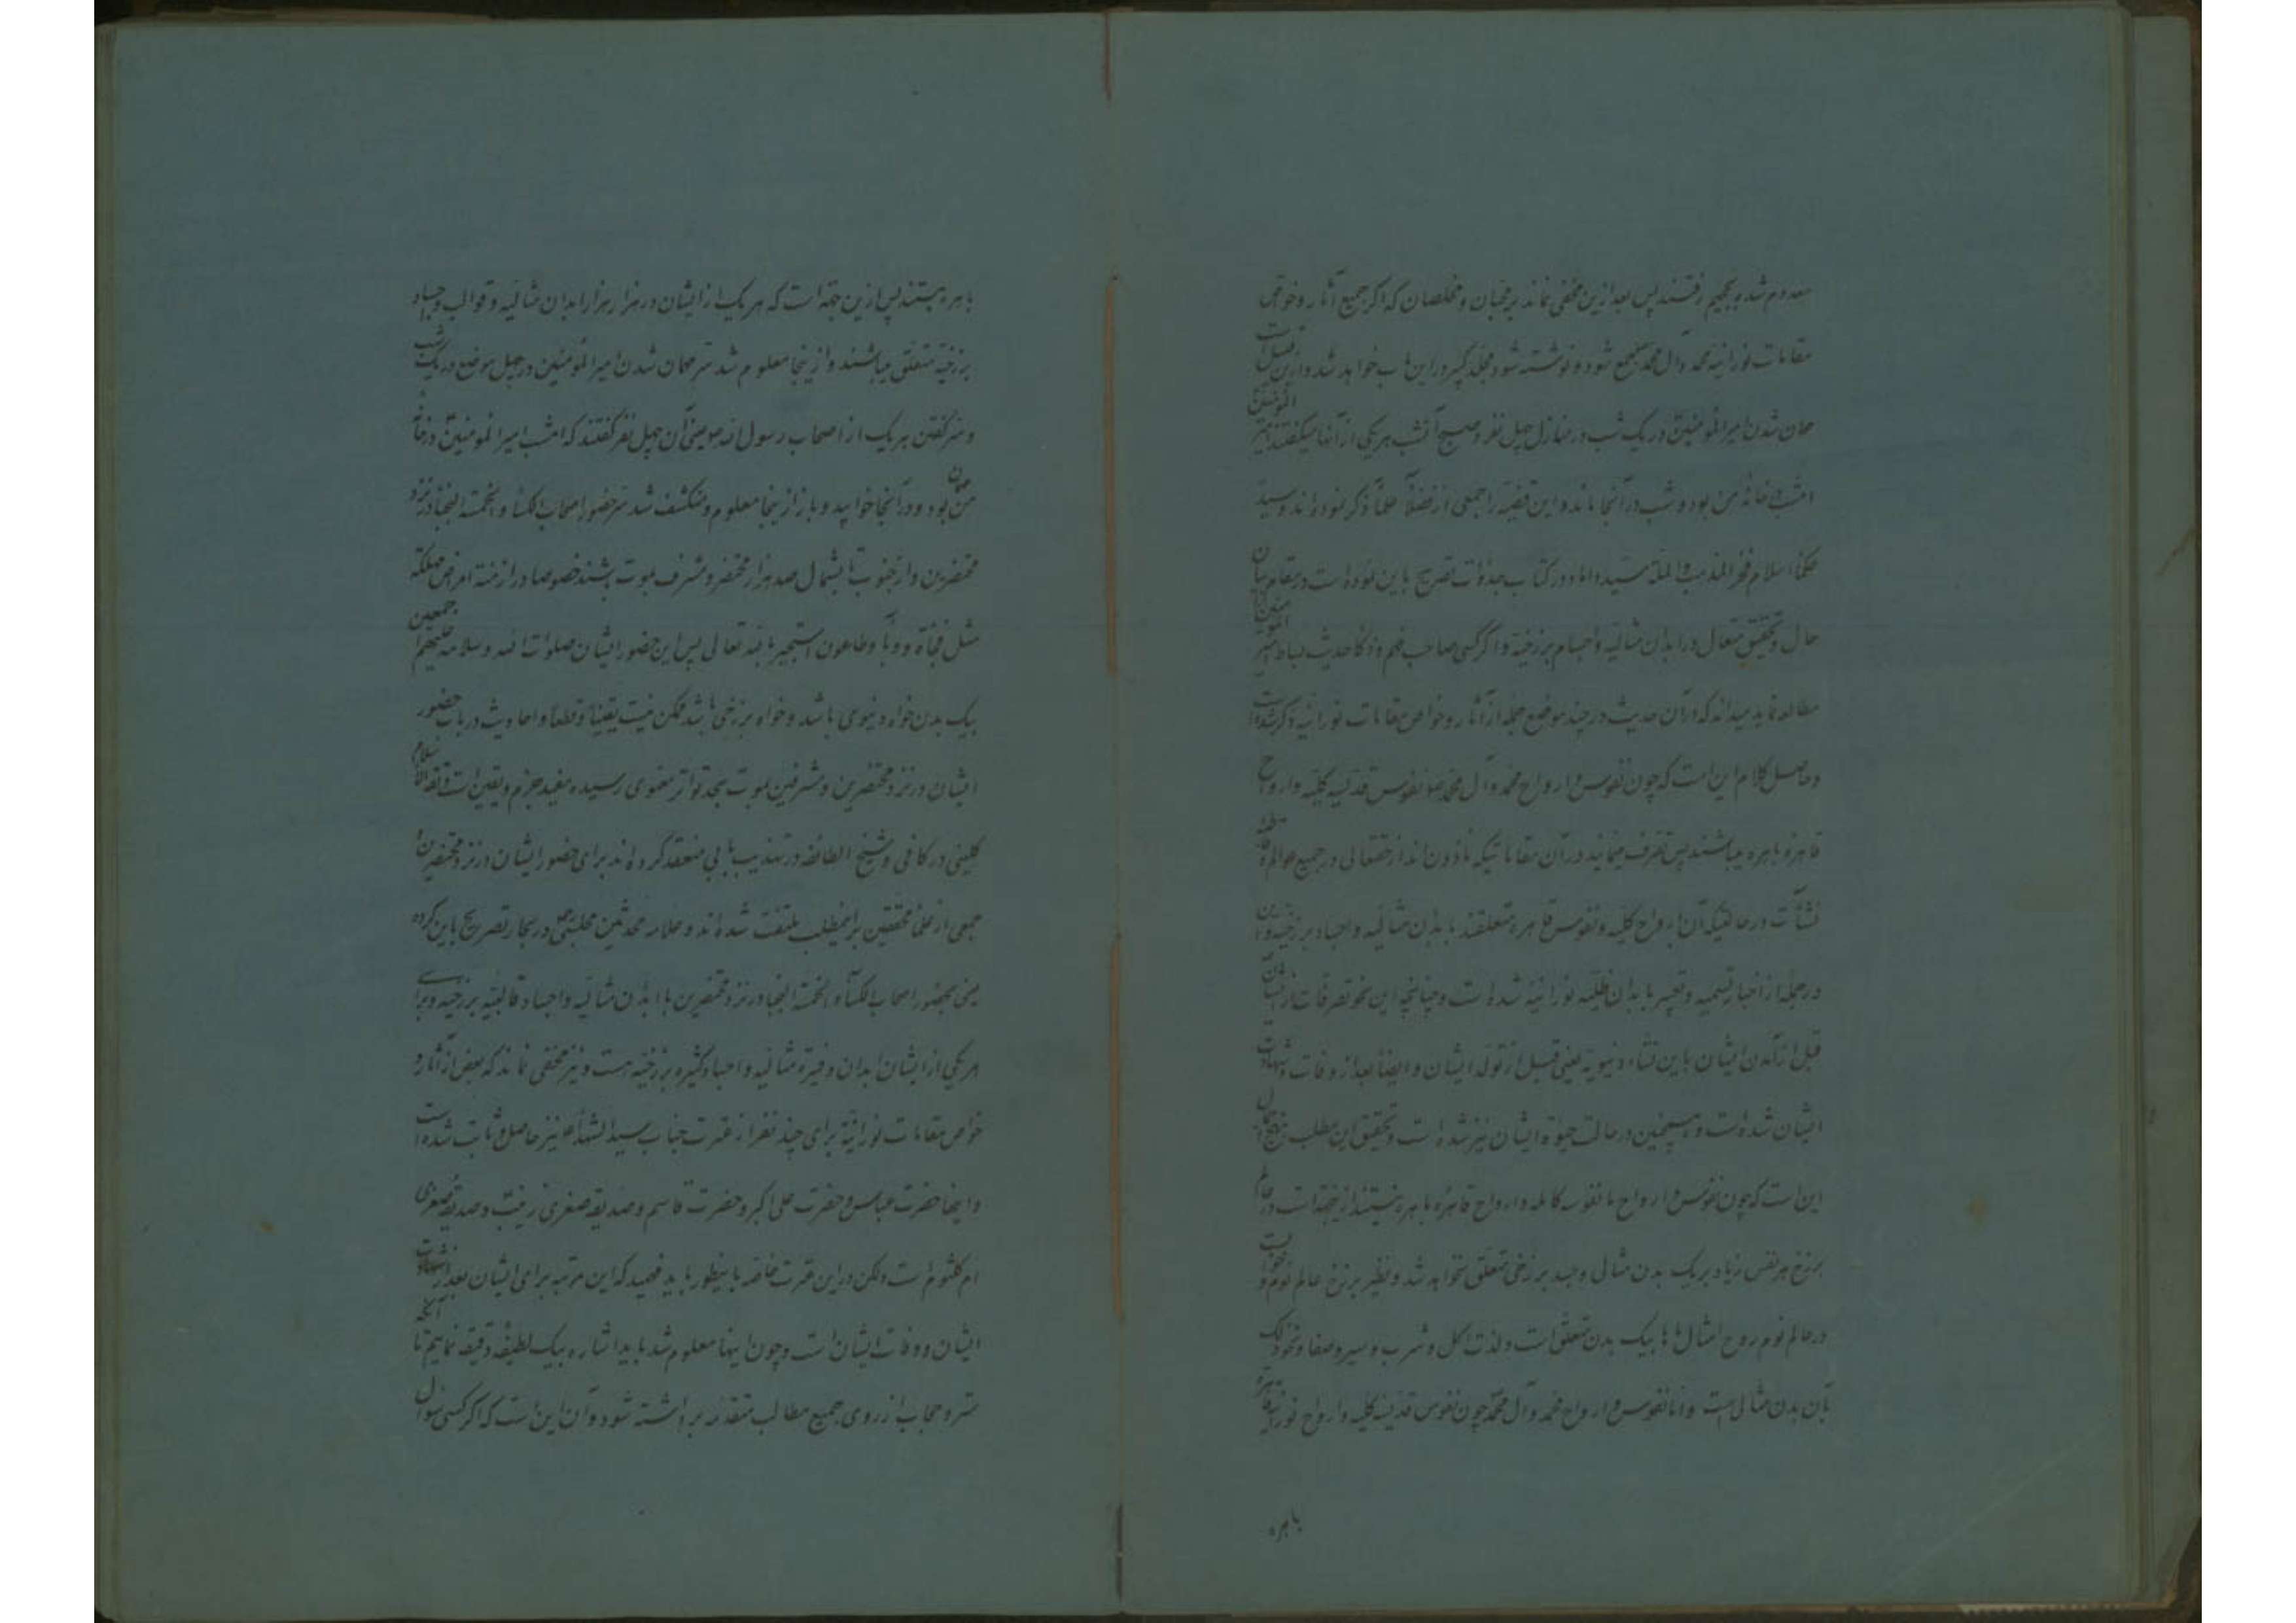 معدوم شده بجحیم رفتند پس بعد ازین مخفی نماند بر محبان و مخلصان که اگر جمیع آثار و خواص
مقامات نورانیه محمد و آل محمد جمع شود و نوشته شود مجلد کبیر در این باب خواهد شد و ازین قبیل است
مهمان شدن امیر المؤمنین در یک شب در منازل چهل نفر و صبح آنشب هر یکی از آنها میگفتند امیر المؤمنین
امشب در خانه من بود و شب در آنجا ماند و این قضیه را جمعی از فضلا و علما ذکر نموده اند و سید
حکماء اسلام فخر المذهب و المله سید داماد در کتاب جذوات تصریح باین نموده است در مقام بیان
حال و تحقیق مقال در ابدان مثالیه و اجسام برزخیه و اگر کسی صاحب فهم و ذکا حدیث بساط امیر المؤمنین
مطالعه نماید میداند که در آن حدیث در چند موضع جمله از آثار و خواص مقامات نورانیه ذکر شده است
و حاصل کلام این است که چون نفوس و ارواح محمد و آل محمد نفوس قدسیه کلیه و ارواح
قاهره باهره میباشند پس تصرف مینمایند در آن مقاماتیکه ماذون اند از حقتعالی در جمیع عوالم و
نشآت در حالتیکه آن ارواح کلیه و نفوس قاهره متعلقند بابدان مثالیه و اجساد برزخیه و
در جمله از اخبار تسمیه و تعبیر بابدان ظلیه نورانیه شده است و چنانچه این نحو تصرفات از ایشان
قبل از آمدن ایشان باین نشاء دنیویه یعنی قبل از تولد ایشان و ایضا بعد از وفات و شهادت
ایشان شده است و همچنین در حالت حیوة ایشان نیز شده است و تحقیق این مطلب بنهج اجمال
این است که چون نفوس و ارواح ما نفوس کامله و ارواح قاهره باهره نیستند ازینجهة است در عالم
برزخ هر نفس زیاد بر یک بدن مثالی و جسد برزخی متعلق نخواهد شد و نظیر برزخ عالم نوم و خوابست
در عالم نوم روح امثال ماها بیک بدن متعلق است و لذت اکل و شرب و سیر و صفا و نحو ذلک
بآن بدن مثالی است و اما نفوس و ارواح محمد و آل محمد چون نفوس قدسیه کلیه و ارواح نورانیه قاهره
باهره
باهره هستند پس ازین جهة است که هر یک از ایشان در هزار هزار ابدان مثالیه و قوالب و اجساد
برزخیه متعلق میباشند و از اینجا معلوم شد سر مهمان شدن امیر المؤمنین در چهل موضع در یک شب
و سر گفتن هر یک از اصحاب رسول الله ص یعنی آن چهل نفر گفتند که امشب امیر المؤمنین در خانه
من مهمان بود و در آنجا خوابید و باز از اینجا معلوم و منکشف شد سر حضور اصحاب الکساء و الخمسة النجباء در نزد
محتضرین و از جنوب تا بشمال صد هزار محتضر و مشرف بموت باشند خصوصا در ازمنه امراض مهلکه
مثل فجأة و وبا و طاعون استجیر بالله تعالی پس این حضور ایشان صلوات الله و سلامه علیهم اجمعین
بیک بدن خواه دنیوی باشد و خواه برزخی باشد ممکن نیست یقینا و قطعا و احادیث در باب حضور
ایشان در نزد محتضرین و مشرفین بموت بحد تواتر معنوی رسیده مفید جزم و یقین است ثقة الاسلام
کلینی در کافی و شیخ الطائفه در تهذیب بابی منعقد کرده اند برای حضور ایشان در نزد محتضرین و
جمعی از علماء محققین بر اینمطلب ملتفت شده اند و علامه محدثین مجلسی در بحار تصریح باین کرده
یعنی بحضور اصحاب الکساء و الخمسة النجباء در نزد محتضرین با ابدان مثالیه و اجساد قالبیه برزخیه و برای
هر یکی از ایشان ابدان وفیره مثالیه و اجساد کثیره برزخیه هست و نیز مخفی نماند که بعض از آثار و
خواص مقامات نورانیه برای چند نفر از عترت جناب سید الشهداء نیز حاصل و ثابت شده است
و اینها حضرت عباس و حضرت علی اکبر و حضرت قاسم و صدیقه صغری زینب و صدیقه صغری
ام کلثوم است و لکن در این عترت خاصه باینطور باید فهمید که این مرتبه برای ایشان بعد از شهادت
ایشان و وفات ایشان است و چون اینها معلوم شد باید اشاره بیک لطیفه دقیقه نمائیم تا آنکه
ستر و حجاب از روی جمیع مطالب متقدمه برداشته شود و آن این است که اگر کسی سؤال